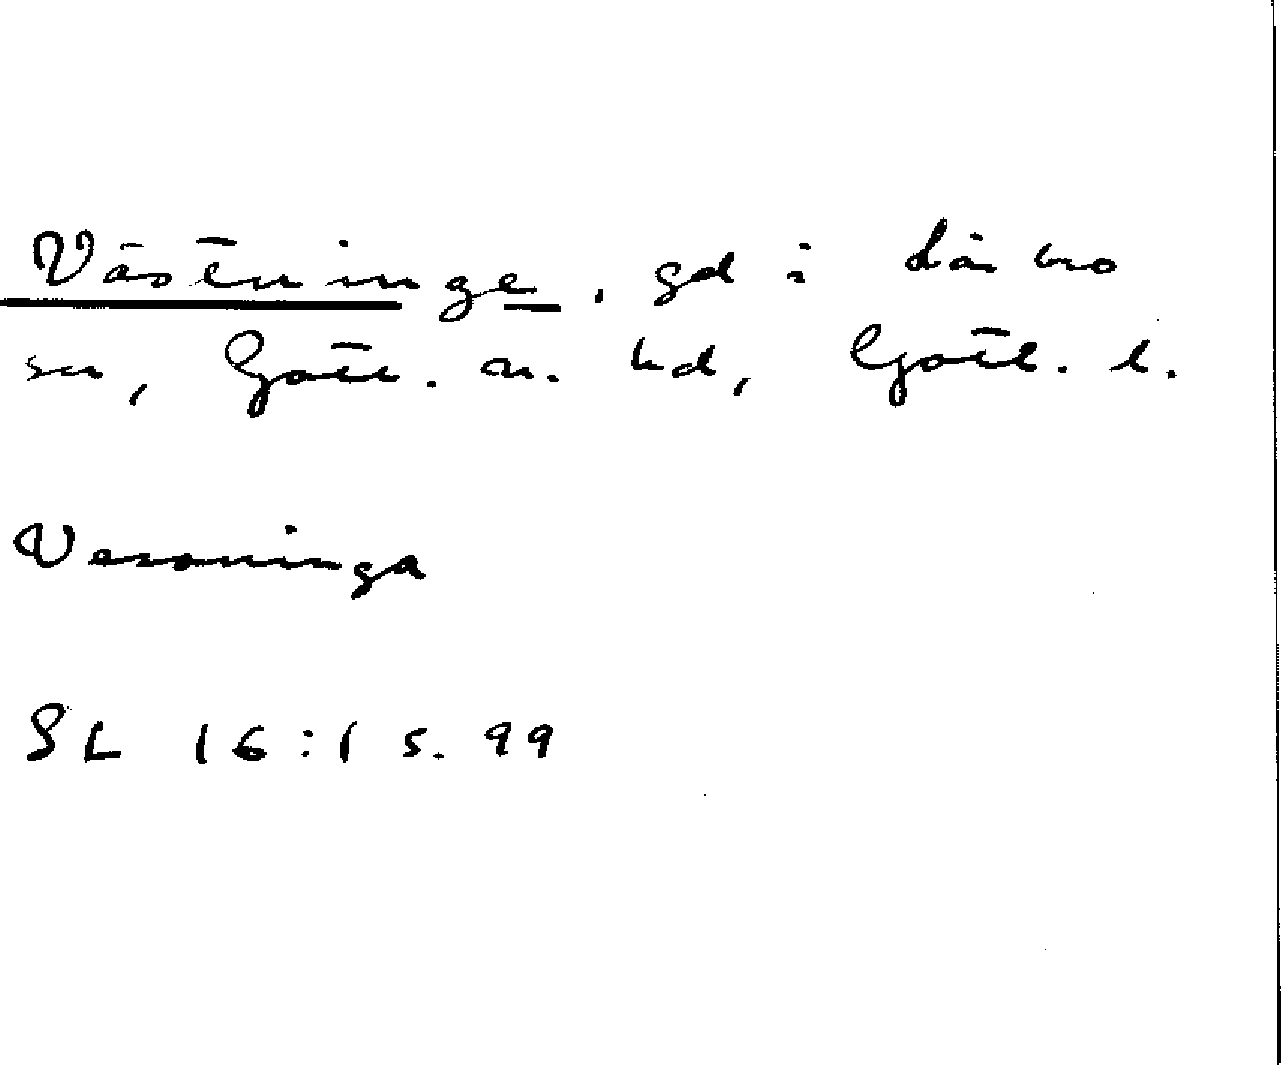 Västeninge, gd i Lärbro
sn, Gotl. n. hd, Gotl. l.
Vesoninga
SL 16:1 s. 99